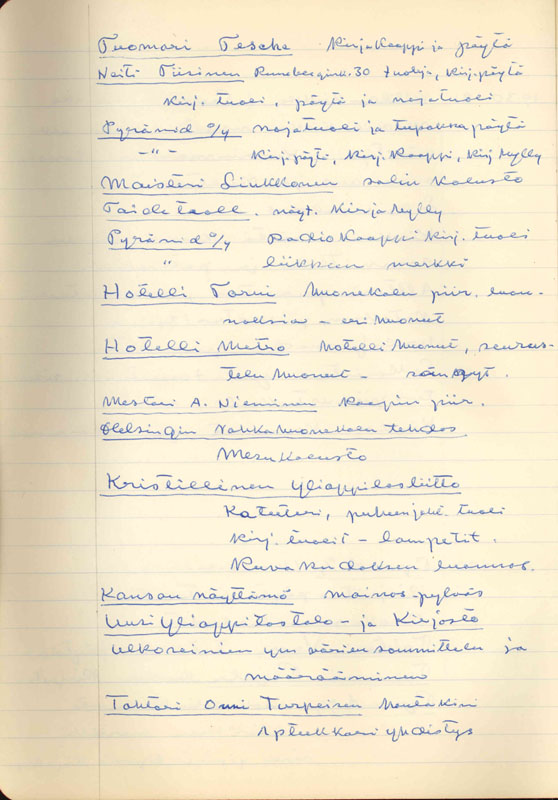 Tuomari Tesche Kirjakaappi ja pöytä
Neiti Tiirinen Runeberginк. 30 tuoleja, Kirj. pöytä
Kirj. tuoli, pöytä ja nojatuoli
Pyramid o/y nojatuoli ja tupakkapöytä
-"- Kirj. pöytä, Kirj. Kaappi, Kirj. hylly
Maisteri Sinkkonen salin kalusto
Taidetaoll. näyt. Kirjahylly
Pyramid o/y Radio Kaappi Kirj. tuoli
" liikkeen merkki
Hotelli Torni huonekalu piir. luon-
noksia - eri huoneet
Hotelli Metro hotelli huoneet, seurus-
telu huoneet -
Mestari A. Nieminen Kaapin piir.
Helsingin Nahkahuonekalu tehdas
Kalusto
Kristillinen Ylioppilasliitto
Kateteri, puheenjoht. tuoli
Kirj. tuolit - lampetit.
Kuva Kudoksen luonnos.
Kansan näyttämö mainos-pylväs
Uusi Ylioppilastalo- ja Kirjasto
ulkoseinien ym värien sommittelu ja
määrääminen
Tohtori Onni Turpeinen
Apteekkariyhdistys